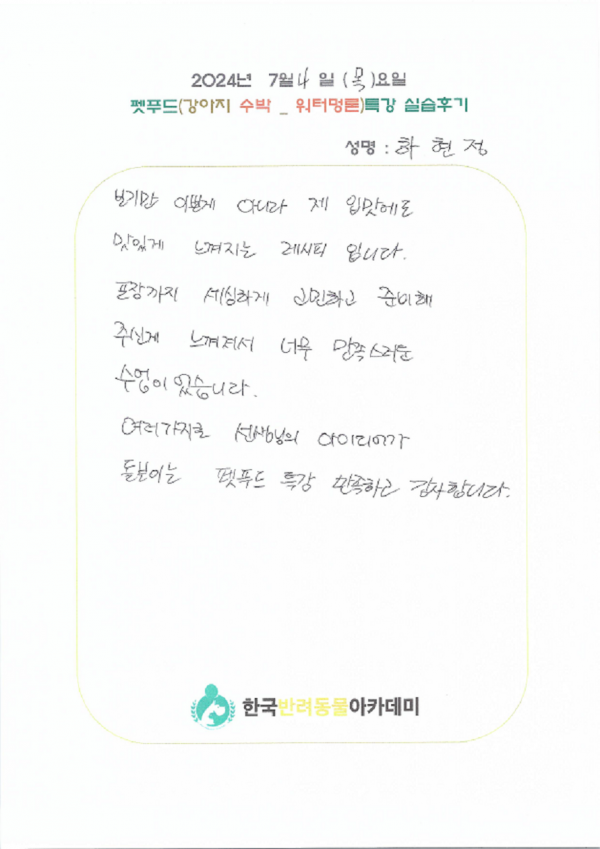 2024년 7월 4일 (목)요일
펫푸드(강아지 수박 _ 워터멍론)특강 실습후기
성명 : 하현정
보기만 이쁠게 아니라 제 입맛에도
맛있게 느껴지는 레시피 입니다.
포장까지 세심하게 고민하고 준비해
주신게 느껴져서 너무 만족스러운
수업이었습니다.
여러가지로 선생님의 아이디어가
돋보이는 펫푸드 특강 만족하고 감사합니다.
한국반려동물아카데미